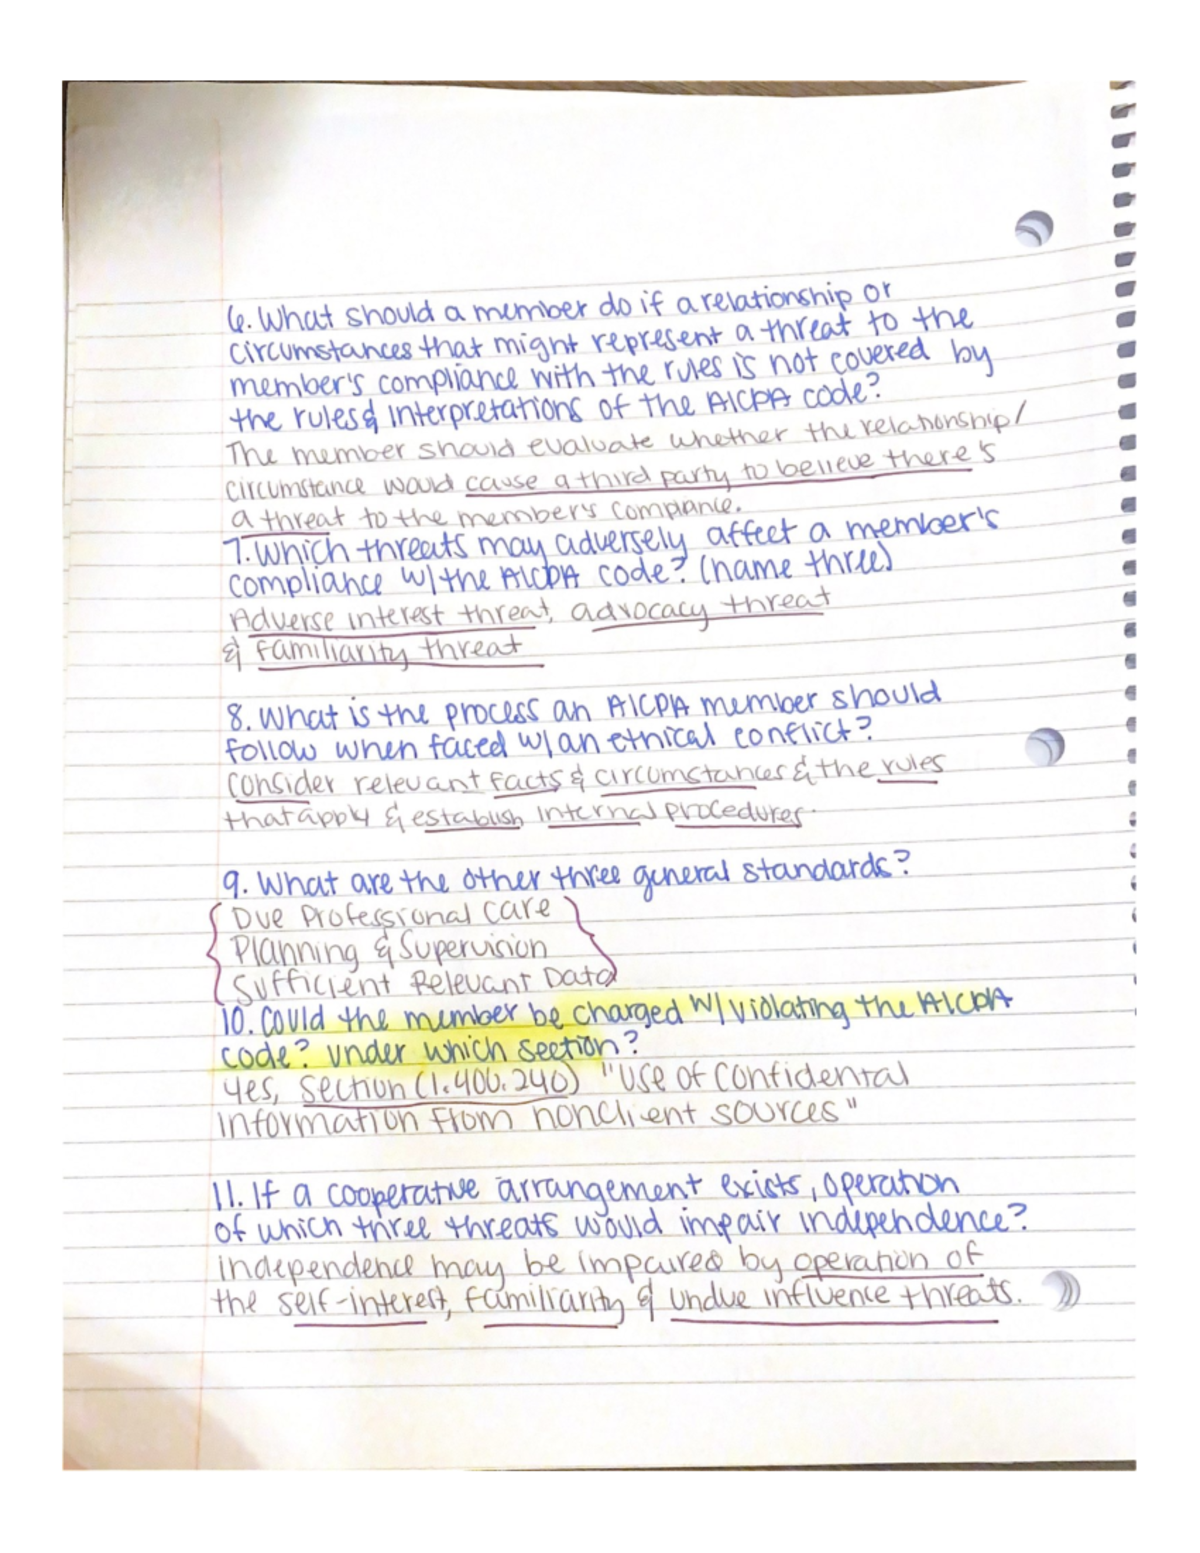 6. What should a member do if a relationship or
circumstances that might represent a threat to the
member's compliance with the rules is not covered by
the rules & interpretations of the AICPA code?
The member should evaluate whether the relationship/
circumstance would cause a third party to believe there's
a threat to the member's compliance.
7. Which threats may adversely affect a member's
compliance w/ the AICPA code? (name three)
Adverse interest threat, advocacy threat
& familiarity threat
8. What is the process an AICPA member should
follow when faced w/ an ethical conflict?
consider relevant facts & circumstances & the rules
that apply & establish internal procedures.
9. What are the other three general standards?
Due Professional Care
Planning & Supervision
Sufficient Relevant Data
10. Could the member be charged w/ violating the AICPA
code? Under which section?
Yes, section (1.400.240) "Use of Confidental
Information from nonclient sources"
11. If a cooperative arrangement exists, operation
of which three threats would impair independence?
independence may be impaired by operation of
the self-interest, familiarity & undue influence threats.